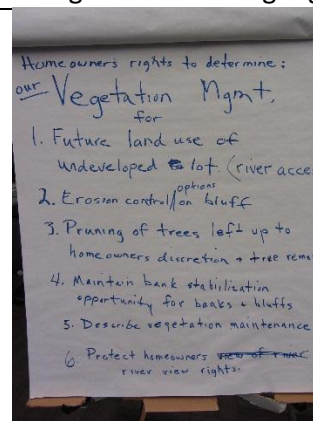 Homeowners rights to determine:
our Vegetation Mgmt,
for
1. Future land use of
undeveloped lot. (river acce
2. Erosion control options on bluff
3. Pruning of trees left up to
homeowners discretion + tree remo
4. Maintain bank stabilization
opportunity for banks + bluffs
5. Describe vegetation maintenance
6. Protect homeowners view of river
river view rights.